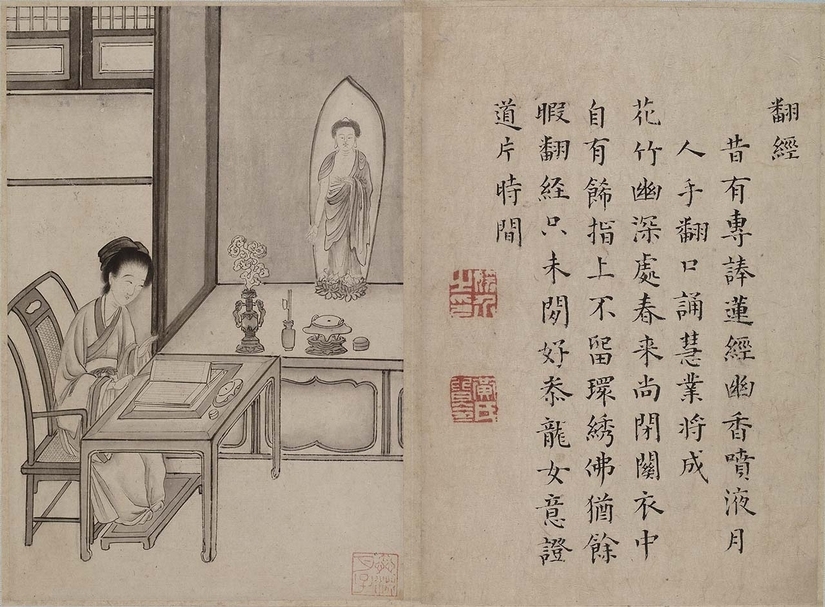 翻經
昔有專蓮經幽香噴液月
人手翻口誦慧業将成
花竹幽深處春来尚閉關衣中
自有餙指上不留環綉佛猶餘
暇翻経只未閑好叅龍女意證
道片時間